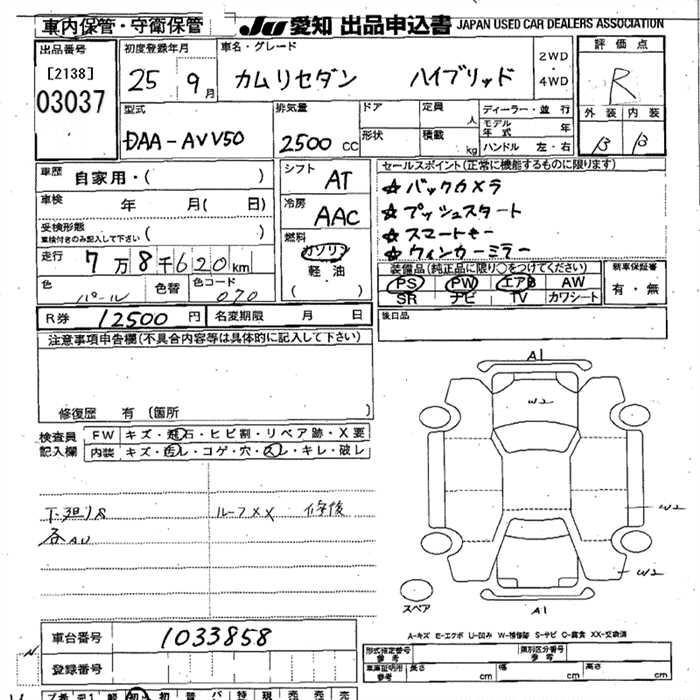 車内保管・守衛保管
JU 愛知 出品申込書 JAPAN USED CAR DEALERS ASSOCIATION
出品番号
[2138]
03037
初度登録年月
25 9月
車名・グレード
カムリセダン ハイブリッド
2WD
・
4WD
評価点
R
外装 内装
β β
型式
DAA-AVV50
排気量
2500 CC
ドア
定員 人
形状
積載 kg
ディーラー・並行
モデル年式 年
ハンドル 左・右
車歴 自家用・( )
車検 年 月( 日)
受検形態
車検付きのみ記入して下さい ( )
走行 7万8千620km
色 パール
色替
色コード 070
シフト AT
冷房 AAC
燃料
ガソリン
軽油
( )
セールスポイント(正常に機能するものに限ります)
☆バックカメラ
☆プッシュスタート
☆スマートキー
☆ウィンカーミラー
装備品(純正品に限り〇をつけてください)
PS PW エアB AW
SR ナビ TV カワシート
新車保証書
有・無
後日品
R券 12500円
名変期限 月 日
注意事項申告欄(不具合内容等は具体的に記入して下さい)
修復歴 有 (箇所 )
検査員
記入欄
FW キズ・飛石・ヒビ割・リペア跡・X要
内装 キズ・汚レ・コゲ・穴・スレ・キレ・破レ
ルーフXX 修後
各AU
A1
W2
W2
W2
A1
スペア
A-キズ E-エクボ U-凹み W-補修跡 S-サビ C-腐食 XX-交換済
車台番号 1033858
登録番号
形式指定番号
参考
類別区分番号
参考
車庫証明用
参考
長さ cm
幅 cm
高さ cm